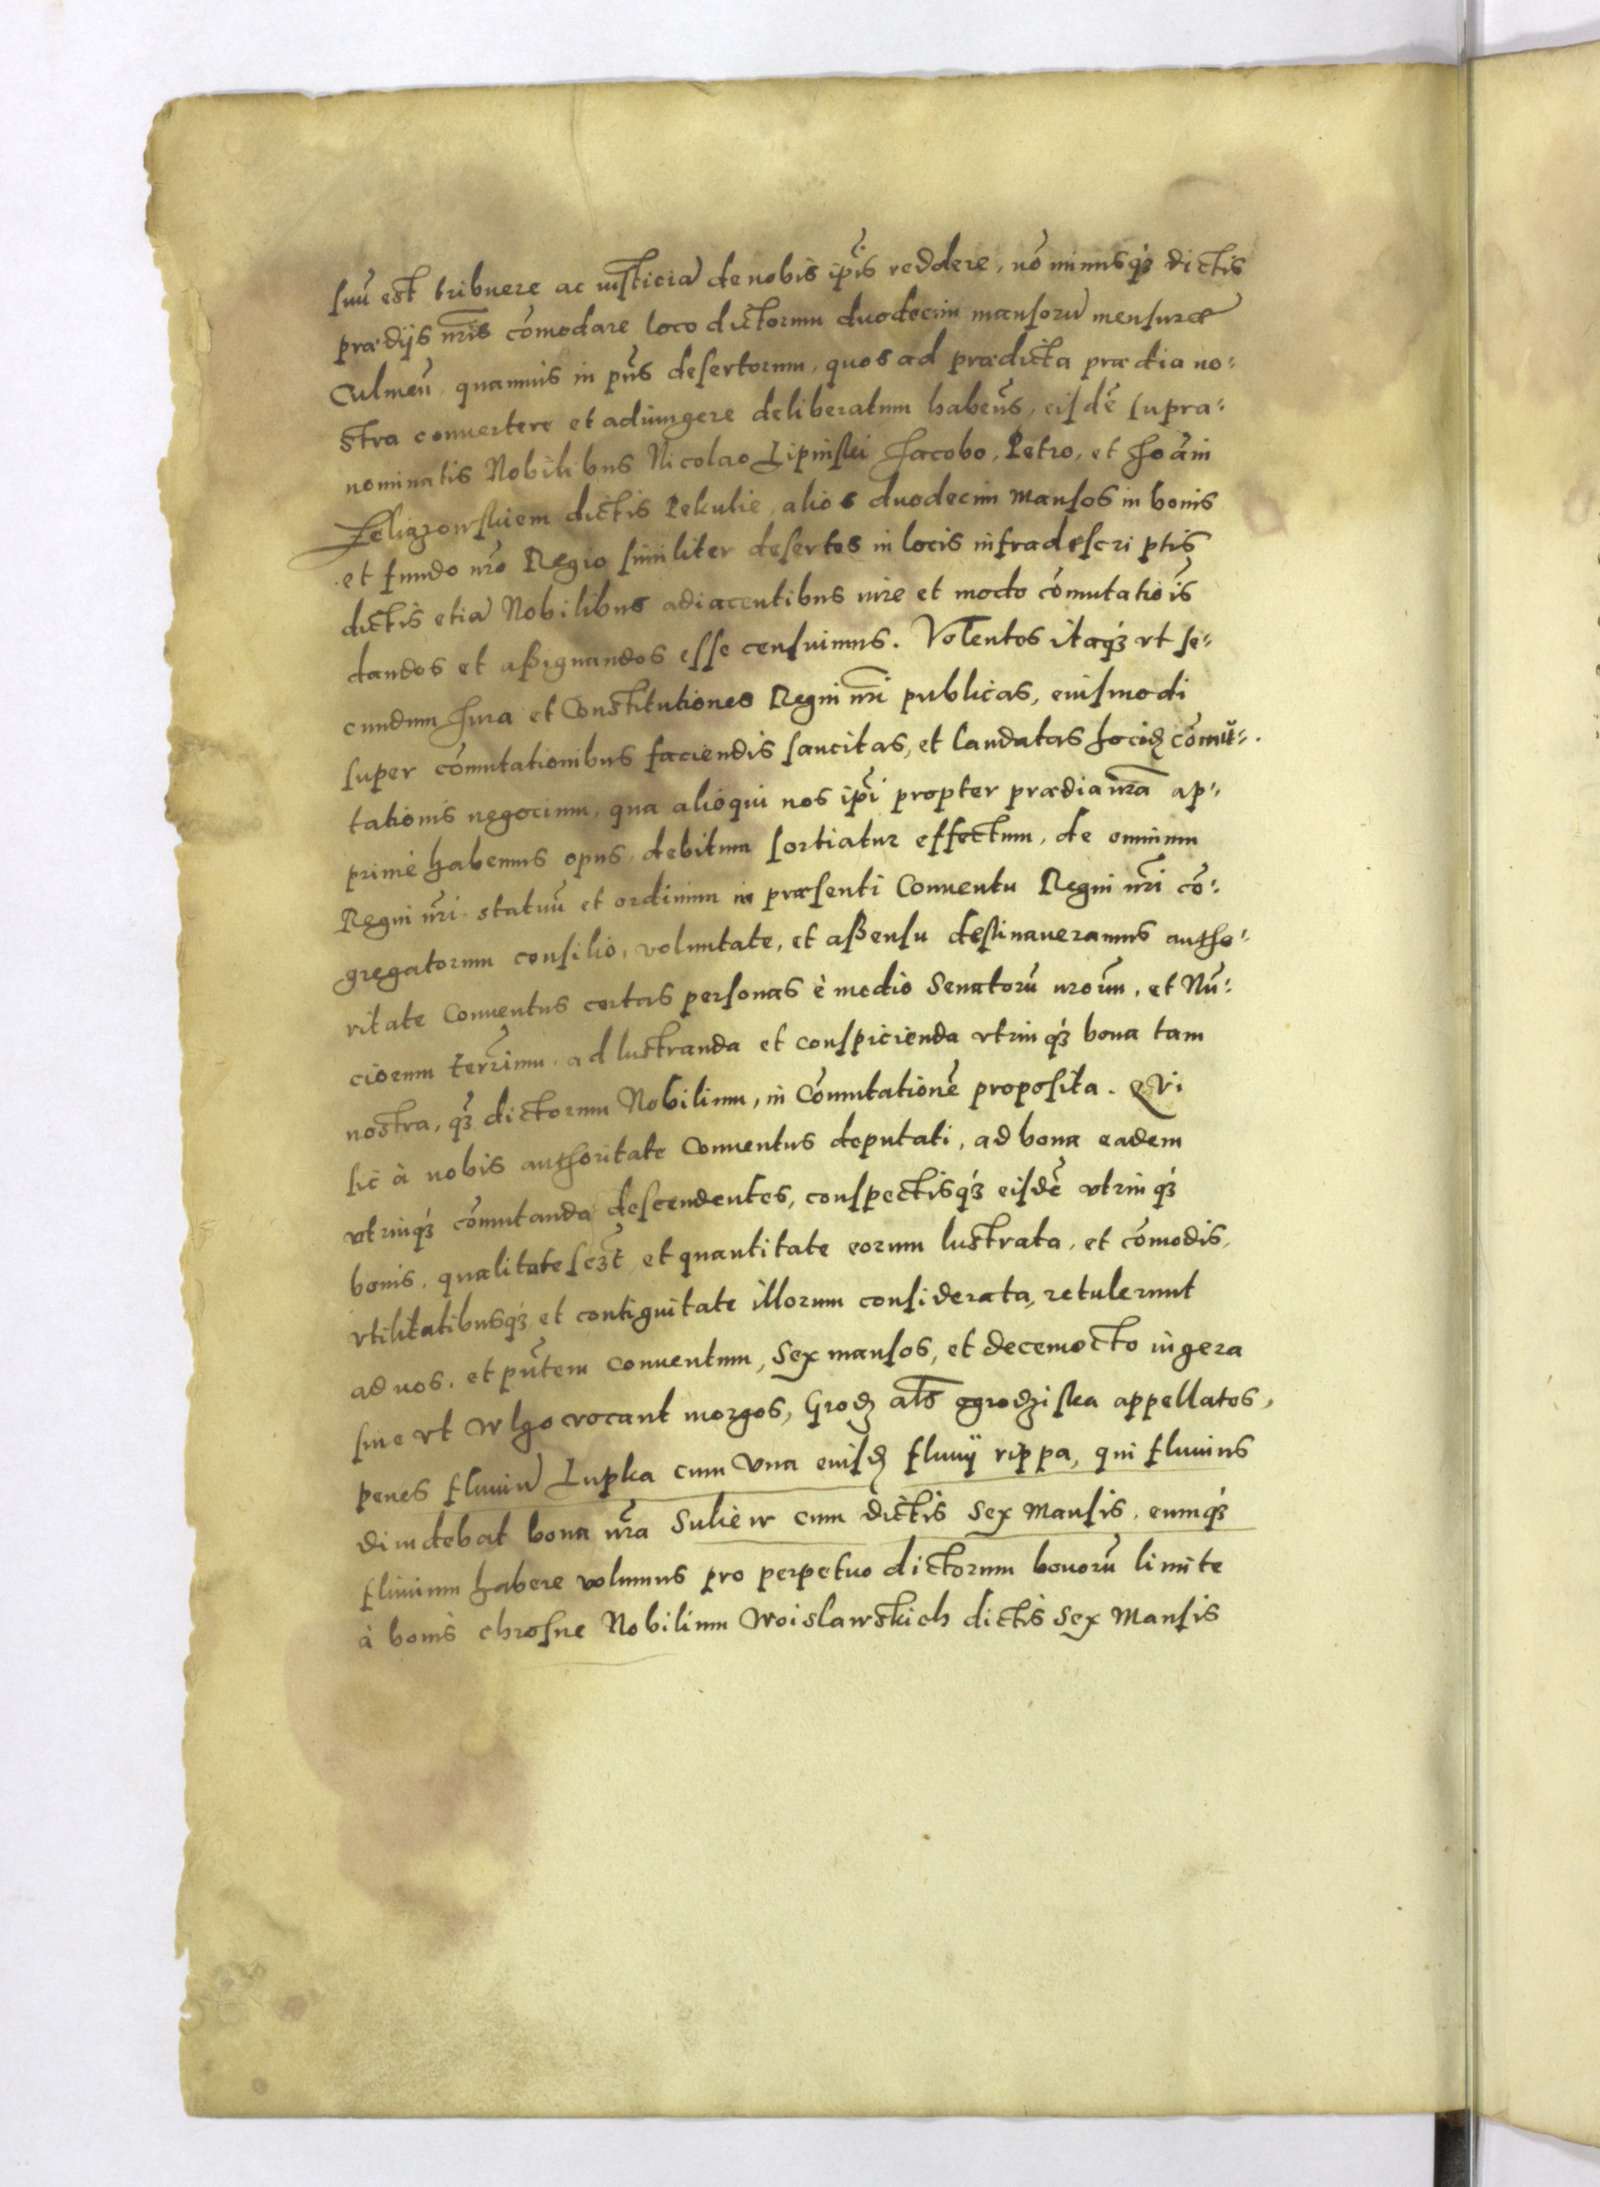 suũ est tribuere ac iusticiã de nobis ip̃is reddere, nõ minusq́ꝫ dictis
prædijs nr̃is cõmodare loco dictorum duodecim mansorũ mensuræ
Culmeñ. quamuis in pñs desertorum, quos ad prædicta prædia no⸗
stra conuertere et adiungere deliberatum habeñs, eisdẽ supra⸗
nominatis Nobilibus Nicolao Lipinski Jacobo, Petro, et Joãni
Feliazowskiem dictis Pekulie, alios duodecim mansos in bonis
et fundo nr̃o Regio similiter desertos in locis infradescriptis
dictis etiã Nobilibus adiacentibus iure et modo cõmutatiõis
dandos et aßignandos esse censuimus. Volentes itaq́ꝫ vt se⸗
cundum Jura et Constitutiones Regni nr̃i publicas, eiusmodi
super cõmutationibus faciendis sancitas, et laudatas hocidꝫ cõmũ⸗
tationis negocium, qua alioqui nos ip̃i propter prædia nr̃a ap⸗
primè habemus opus, debitum sortiatur effectum, de omnium
Regni nr̃i statuũ et ordinum in præsenti Conuentu Regni nr̃i cõ⸗
gregatorum consilio, voluntate, et aßensu destinaueramus autho⸗
ritate Conuentus certas personas è medio Senatorũ nr̃orum, et Nũ⸗
ciorum terr̃arum ad lustranda et conspicienda vtrinq́ꝫ bona tam
nostra, q̃ꝫ dictorum Nobilium, in Cõmutationẽ proposita. Qui
sic à nobis authoritate Conuentus deputati, ad bona eadem
vtrinq́ꝫ cõmutanda descendentes, conspectisq́ꝫ eisdẽ vtrinq́ꝫ
bonis, qualitate scꝫt, et quantitate eorum lustrata, et cõmodis,
vtilitatibusq́ꝫ et contiguitate illorum considerata, retulerunt
ad nos, et pñtem Conuentum, Sex mansos, et decemocto iugera
siue vt vulgo vocant morgos, Grodꝫ al̃s grodziska appellatos,
penes fluuiũ Lupka cum vna eiusdꝫ fluuij rippa, qui fluuius
diuidebat bona nr̃a Suliew cum dictis Sex Mansis, eumq́ꝫ
fluuium habere volumus pro perpetuo dictorum bonorũ limite
à bonis chrosne Nobilium Woislawskich dictis Sex Mansis